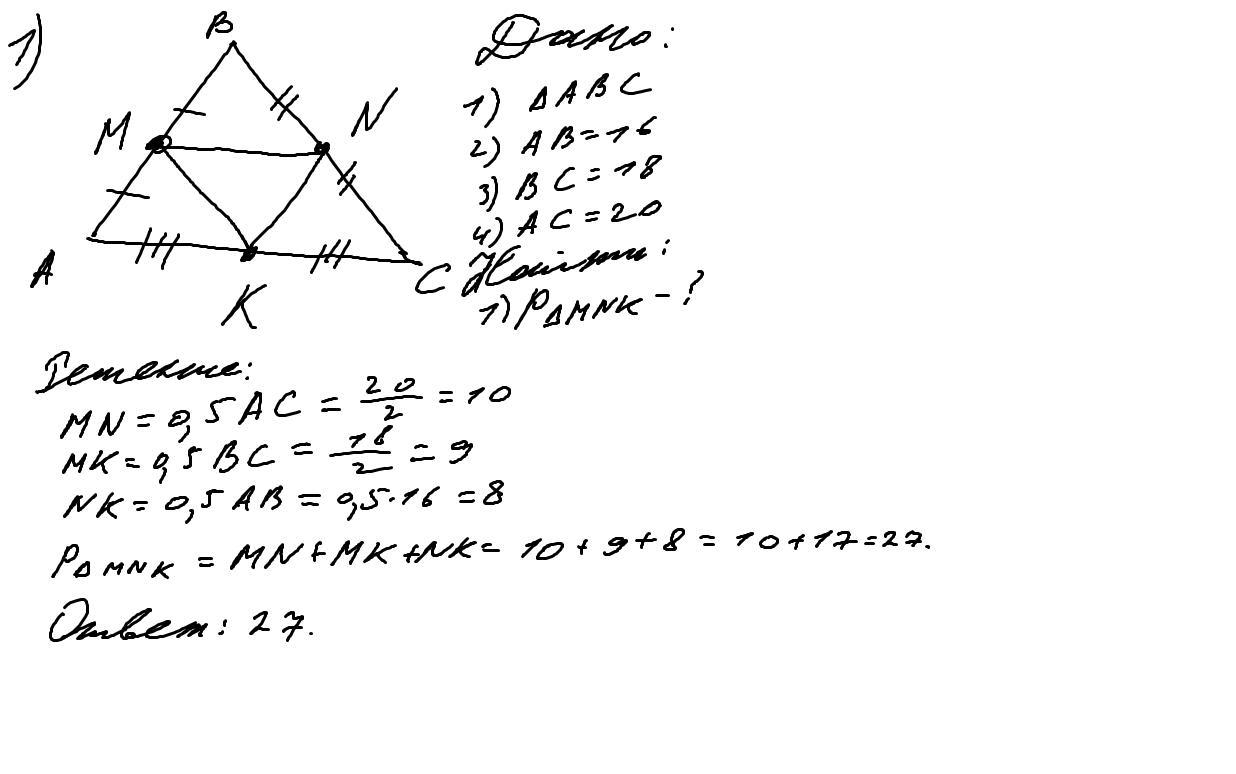 1)
B
M
N
A
K
C
Дано:
1) ΔABC
2) AB=16
3) BC=18
4) AC=20
Найти:
1) PΔMNK - ?
Решение:
MN = 0,5AC = 20/2 = 10
MK = 0,5BC = 18/2 = 9
NK = 0,5AB = 0,5·16 = 8
PΔMNK = MN+MK+NK = 10+9+8 = 10+17=27.
Ответ: 27.